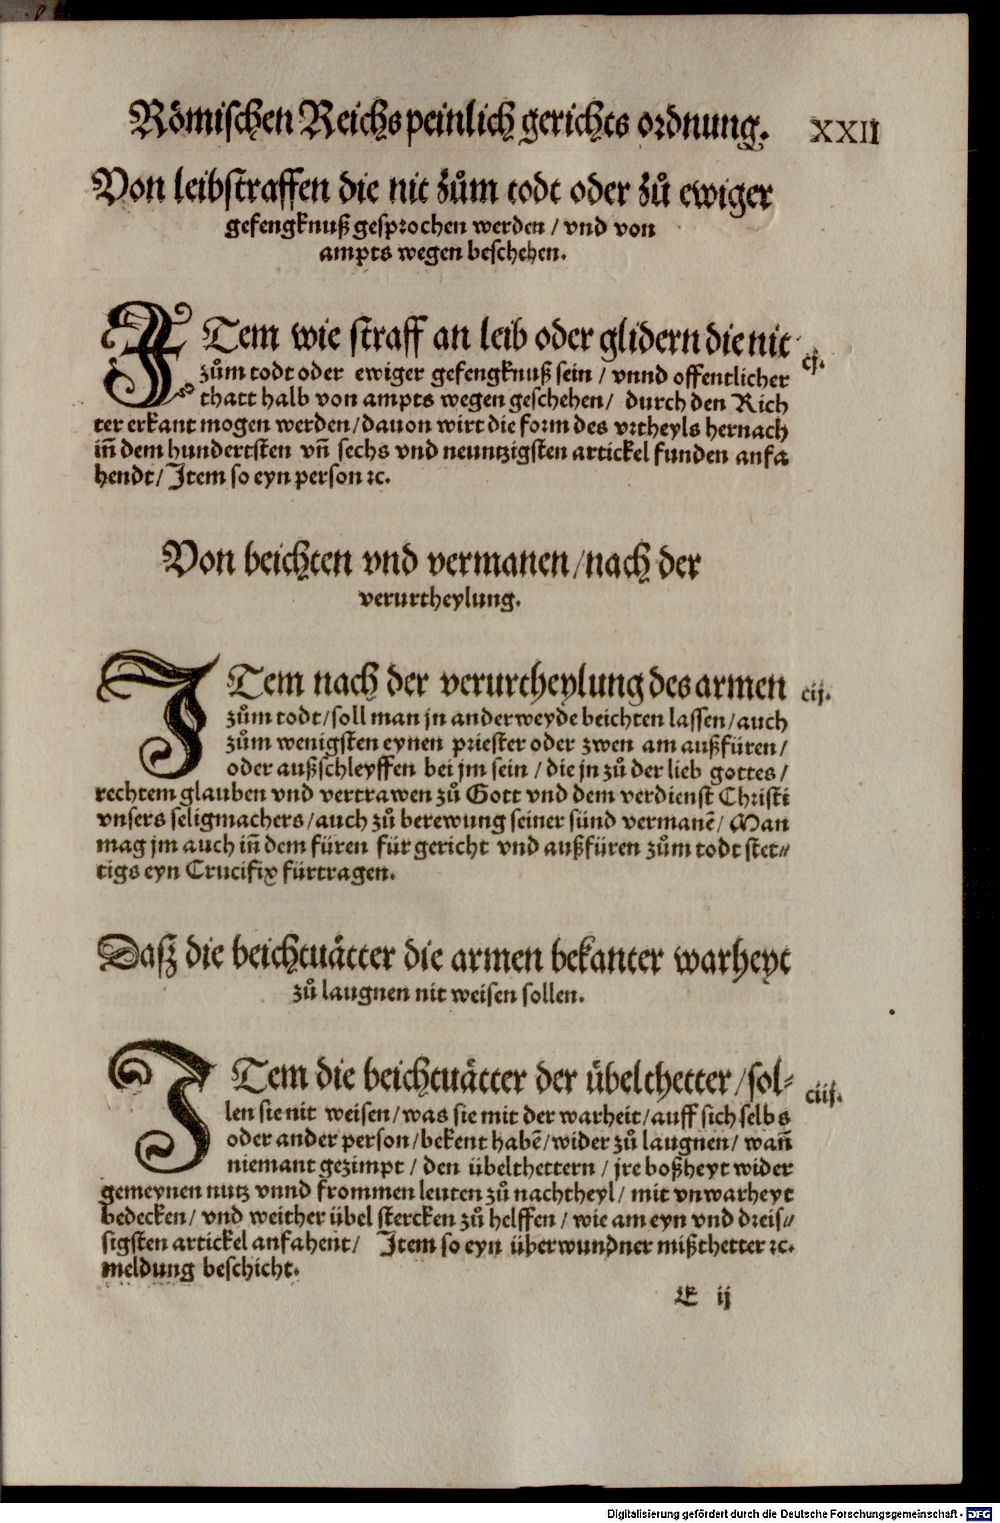 Römischen Reichs peinlich gerichts ordnung. XXII
Von leibstraffen die nit zům todt oder zů ewiger
gefengknuß gesprochen werden / vnd von
ampts wegen beschehen.
ITem wie straff an leib oder glidern die nit cj.
zům todt oder ewiger gefengknuß sein / vnnd offentlicher
thatt halb von ampts wegen geschehen / durch den Rich
ter erkant mogen werden / dauon wirt die form des vrtheyls hernach
inn̄ dem hundertsten vn̄ sechs vnd neuntzigsten artickel funden anfa
hendt / Item so eyn person ꝛc.
Von beichten vnd vermanen / nach der
verurtheylung.
ITem nach der verurtheylung des armen cij.
zům todt / soll man jn anderweyde beichten lassen / auch
zům wenigsten eynen priester oder zwen am außfüren /
oder außschleyffen bei jm sein / die jn zů der lieb gottes /
rechtem glauben vnd vertrawen zů Gott vnd dem verdienst Christi
vnsers seligmachers / auch zů berewung seiner sünd vermanē / Man
mag jm auch inn̄ dem füren für gericht vnd außfüren zům todt stet⸗
tigs eyn Crucifix fürtragen.
Dasz die beichtuätter die armen bekanter warheyt
zů laugnen nit weisen sollen.
ITem die beichtuätter der übelthetter / sol⸗ ciij.
len sie nit weisen / was sie mit der warheit / auff sich selbs
oder ander person / bekent habē / wider zů laugnen / wann̄
niemant gezimpt / den übelthettern / jre boßheyt wider
gemeynen nutz vnnd frommen leuten zů nachtheyl / mit vnwarheyt
bedecken / vnd weither übel stercken zů helffen / wie am eyn vnd dreis⸗
sigsten artickel anfahent / Item so eyn überwundner mißthetter ꝛc.
meldung beschicht.
E ij
Digitalisierung gefördert durch die Deutsche Forschungsgemeinschaft - DFG